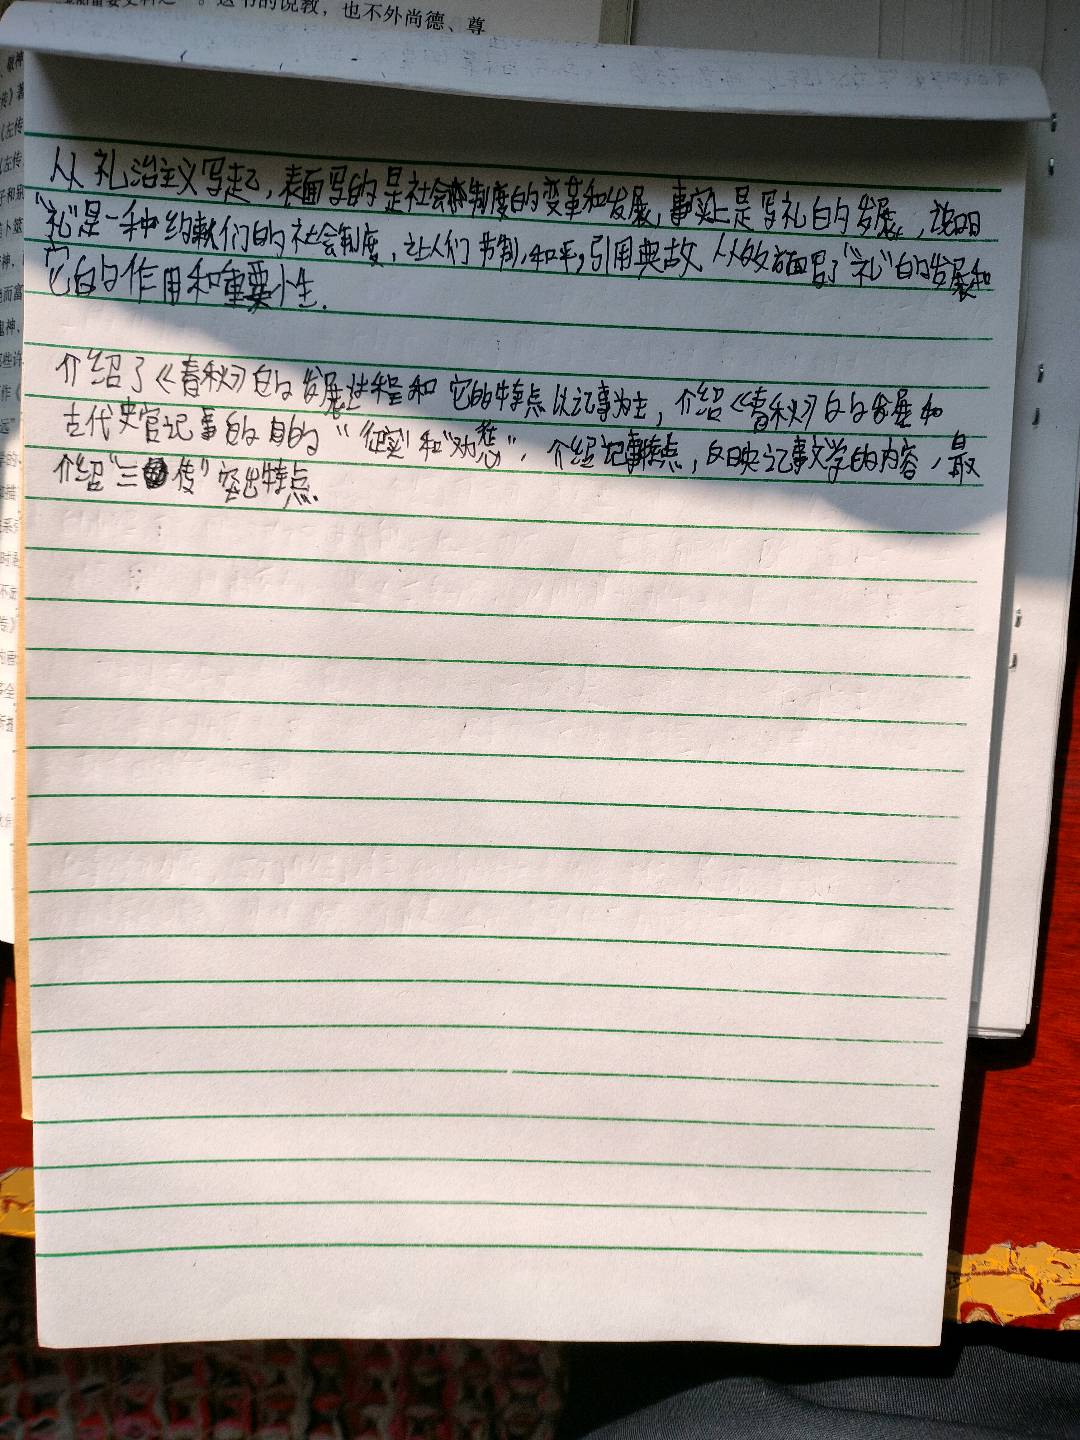 。这书的说教，也不外尚德、尊
从礼治主义写起，表面写的是社会制度的变革和发展，事实上是写礼的发展，说明
“礼”是一种约款们的社会制度，让人们节制，和平，引用典故从政方面写了“礼”的发展和
它的作用和重要小生.
介绍了《春秋》的发展过程和它的特点以记事为主，介绍《春秋》的发展和
古代史官记事的目的“征实”和“劝惩”，介绍记事特点，反映记事文学的内容，最
介绍“三传”突出特点.